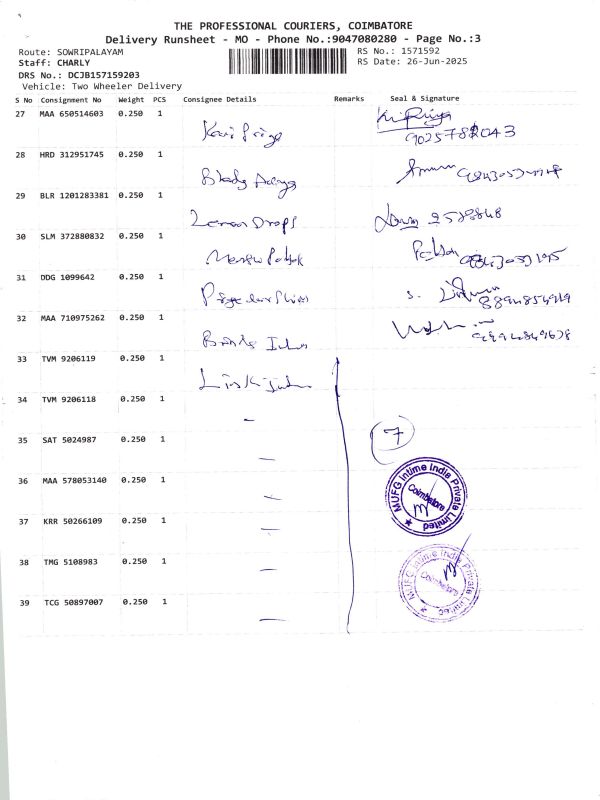 THE PROFESSIONAL COURIERS, COIMBATORE
Delivery Runsheet - MO - Phone No.:9047080280 - Page No.:3
Route: SOWRIPALAYAM
RS No.: 1571592
Staff: CHARLY
RS Date: 26-Jun-2025
DRS No.: DCJB157159203
Vehicle: Two Wheeler Delivery
S No Consignment No Weight PCS Consignee Details Remarks Seal & Signature
27 MAA 650514603 0.250 1
28 HRD 312951745 0.250 1
29 BLR 1201283381 0.250 1
Lemon Drops
30 SLM 372880832 0.250 1
31 DDG 1099642 0.250 1
32 MAA 710975262 0.250 1
33 TVM 9206119 0.250 1
34 TVM 9206118 0.250 1
35 SAT 5024987 0.250 1
7
36 MAA 578053140 0.250 1
MUFG Intime India Private Limited
Coimbatore
37 KRR 50266109 0.250 1
38 TMG 5108983 0.250 1
MUFG Intime India Private Limited
Coimbatore
39 TCG 50897007 0.250 1